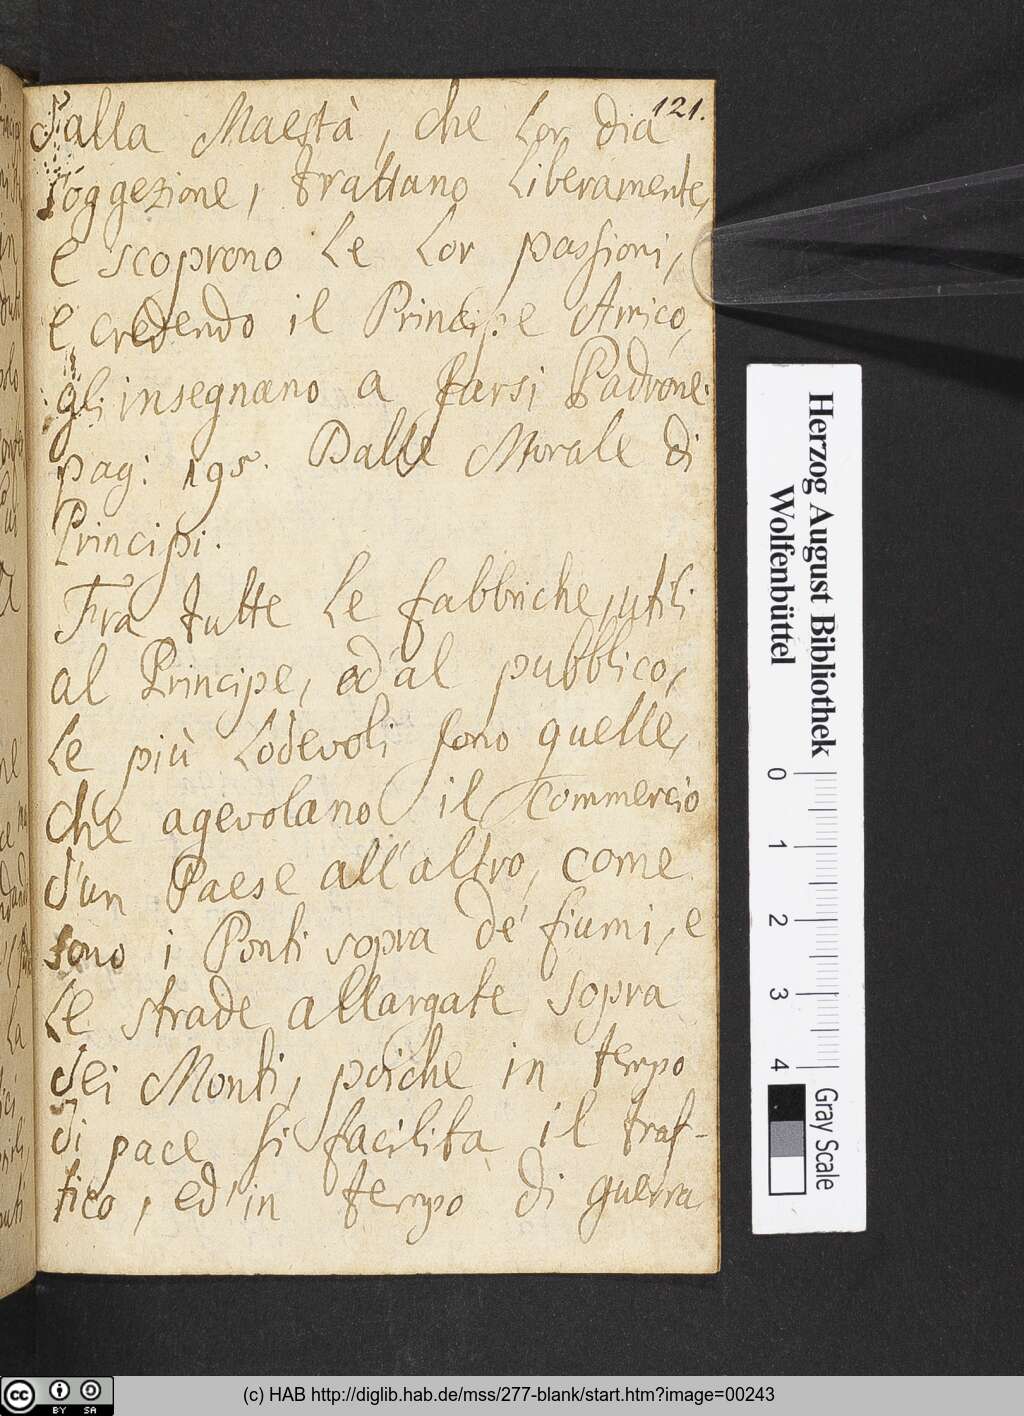 121.
dalla Maestà, che lor dia
soggezione, trattano liberamente,
e scoprono le lor passioni,
e credendo il Principe Amico,
gli insegnano a farsi Padrone.
pag: 195. Dalle Morale di
Principi.
Fra tutte le fabbriche, utili
al Principe, ed al pubblico,
le più lodevoli sono quelle,
che agevolano il Commercio
d'un Paese all'altro, come
sono i Ponti sopra de' fiumi, e
le strade allargate sopra
dei Monti, poiche in tempo
di pace si facilita il traf-
fico, ed' in tempo di guerra
Herzog August Bibliothek
Wolfenbüttel
0 1 2 3 4
Gray Scale
cc BY SA
(c) HAB http://diglib.hab.de/mss/277-blank/start.htm?image=00243